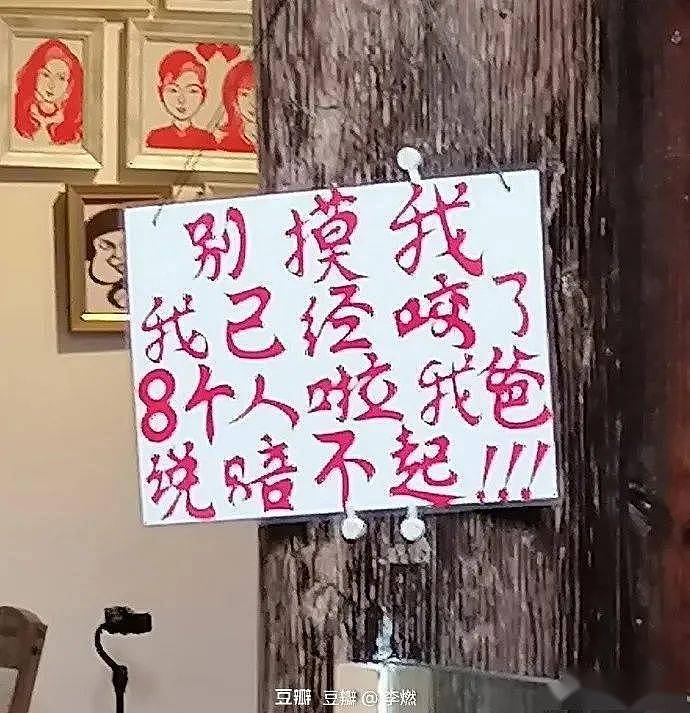 别摸我
我已经咬了
8个人啦我爸
说赔不起!!!
豆瓣 豆瓣 @李燃